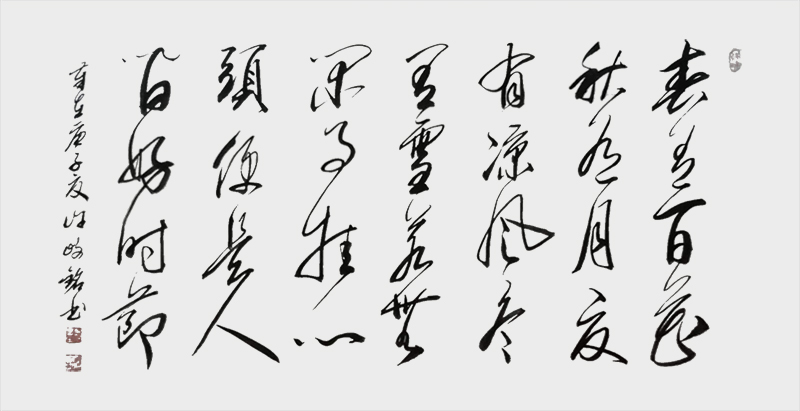 春有百花
秋有月夏
有凉风冬
有雪若無
闲事挂心
頭便是人
间好时節
岁在庚子夏许铭书